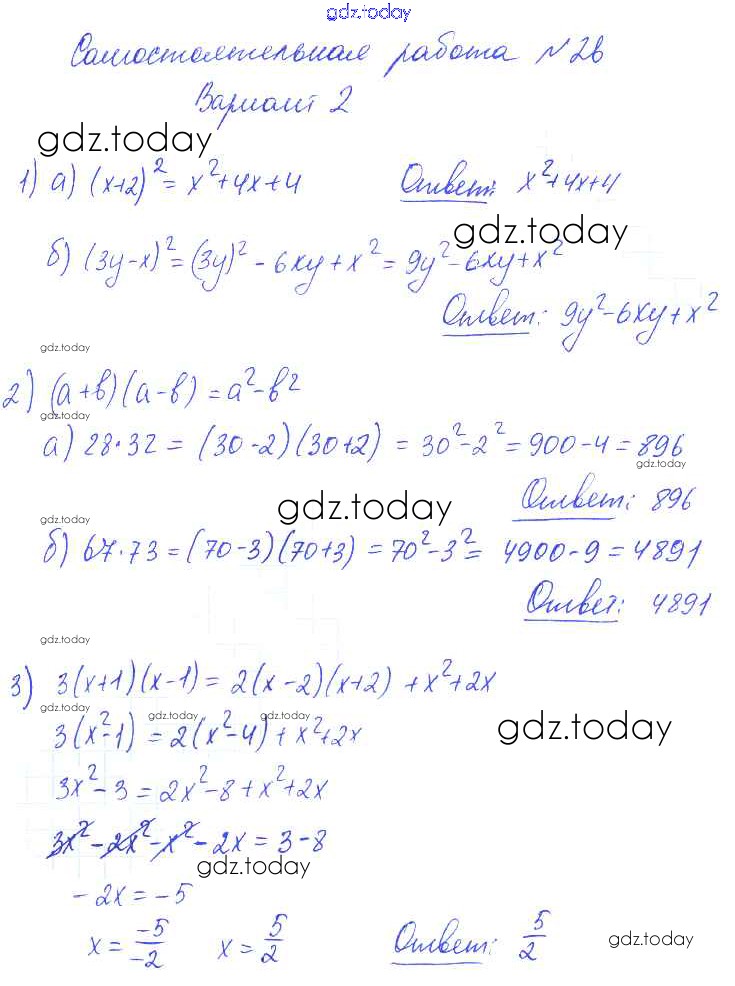 gdz.today
Самостоятельная работа №26
Вариант 2
gdz.today
1) а) (x+2)² = x²+4x+4 Ответ: x²+4x+4
gdz.today
б) (3y-x)² = (3y)² - 6xy + x² = 9y² - 6xy + x²
Ответ: 9y²-6xy+x²
gdz.today
2) (a+b)(a-b) = a²-b²
gdz.today
а) 28·32 = (30-2)(30+2) = 30²-2² = 900-4 = 896
gdz.today
Ответ: 896
gdz.today
gdz.today
б) 67·73 = (70-3)(70+3) = 70²-3² = 4900-9 = 4891
Ответ: 4891
gdz.today
3) 3(x+1)(x-1) = 2(x-2)(x+2) + x²+2x
gdz.today gdz.today gdz.today
3(x²-1) = 2(x²-4) + x²+2x
gdz.today
3x²-3 = 2x²-8+x²+2x
3x²-2x²-x²-2x = 3-8
gdz.today
-2x = -5
x = -5/-2 x = 5/2 Ответ: 5/2
gdz.today